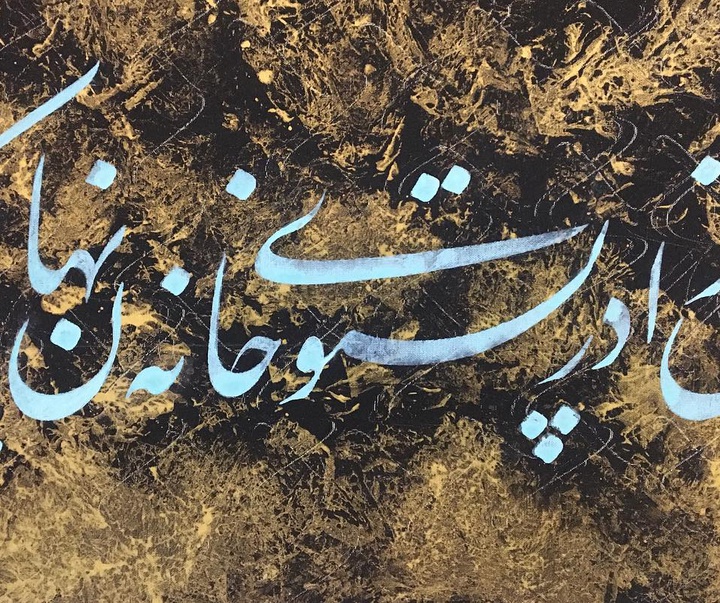 را در پستوی خانه نهان